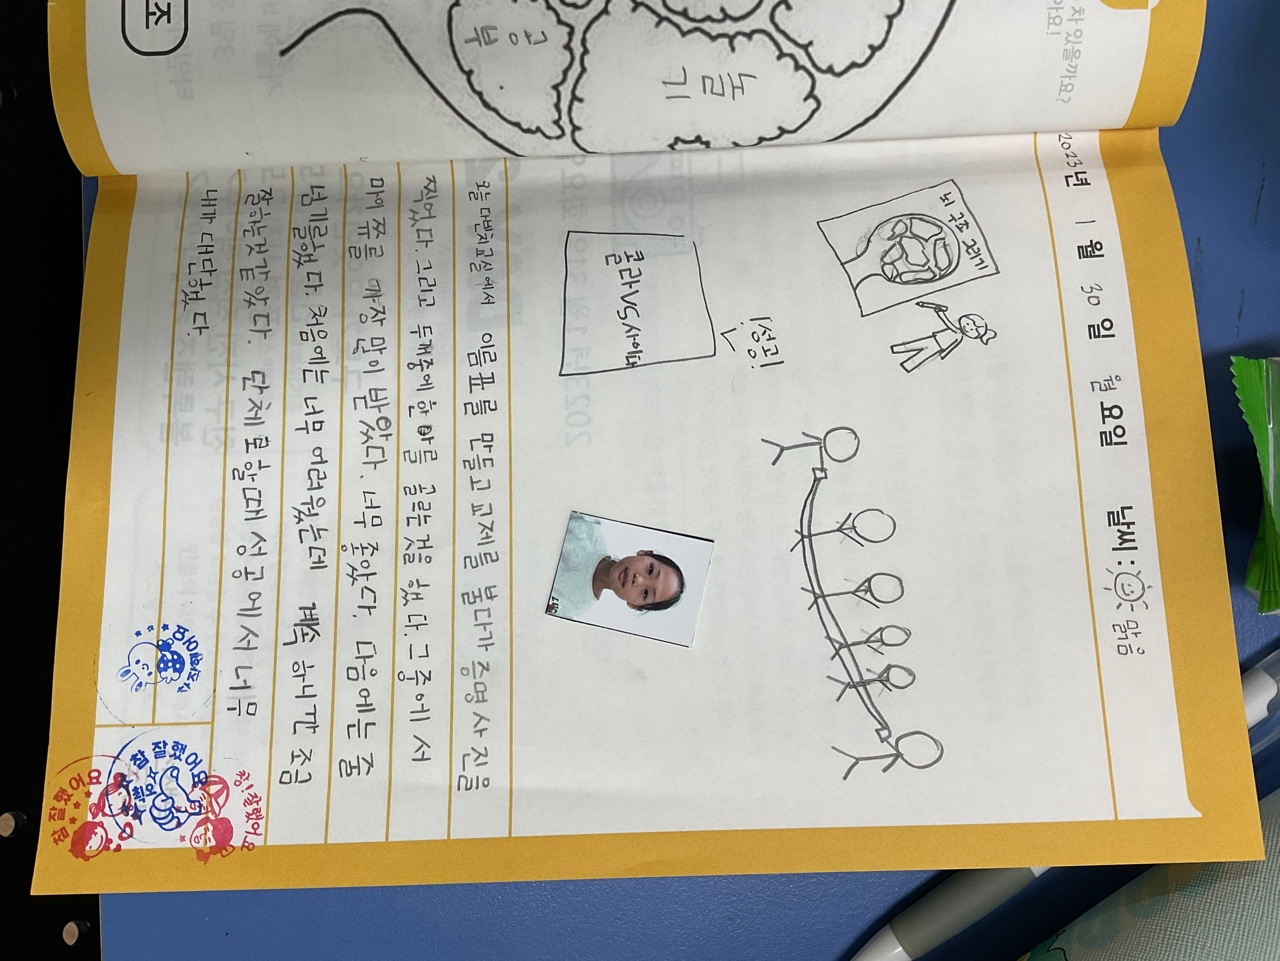 차 있을까요?
아요!
놀
기
공
부
조
2023년 1월 30일 월요일 날씨: 맑음
뇌 구조 그리기
!성공!
콜라VS사이다
오늘 다빈치교실에서 이름표를 만들고 교제를 불다가 증명사진을
찍었다. 그리고 두개중에 한 아를 골르는것을 했다. 그중에서
마이쮸를 가장 많이 받았다. 너무 좋았다. 다음에는 줄
넘기를했다. 처음에는 너무 어려웠는데 계속 하니깐 조금
잘하는것같았다. 단체로할때 성공에서 너무
내가 대단했다.
참!잘했어요
참잘했어요
참잘했어요